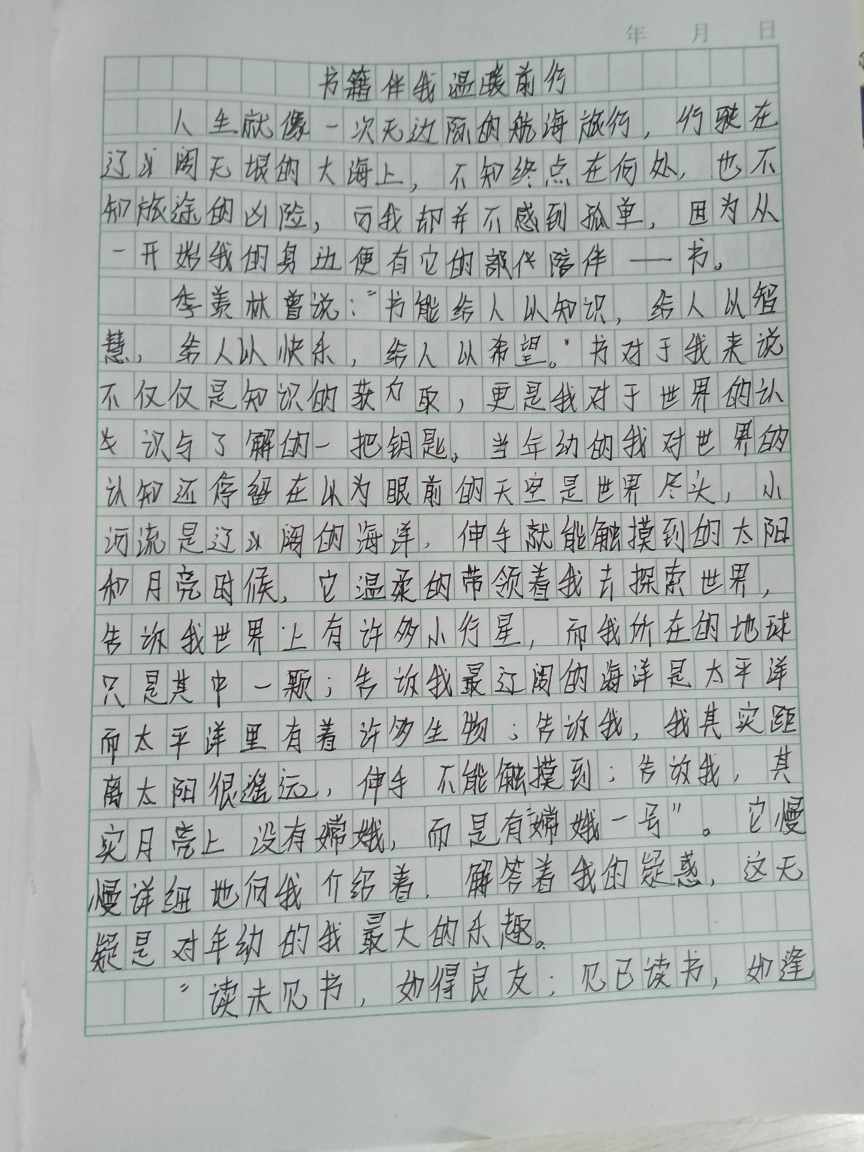 年 月 日
书籍伴我温暖前行
人生就像一次无边际的航海旅行，行驶在
辽阔无垠的大海上，不知终点在何处，也不
知旅途的凶险，而我却并不感到孤单，因为从
一开始我的身边便有它的陪伴——书。
季羡林曾说："书能给人以知识，给人以智
慧，给人以快乐，给人以希望。"书对于我来说
不仅仅是知识的获取，更是我对于世界的认
识与了解的一把钥匙。当年幼的我对世界的
认知还停留在以为眼前的天空是世界尽头，小
河流是辽阔的海洋，伸手就能触摸到的太阳
和月亮时候，它温柔的带领着我去探索世界，
告诉我世界上有许多小行星，而我所在的地球
只是其中一颗；告诉我最辽阔的海洋是太平洋
而太平洋里有着许多生物；告诉我，我其实距
离太阳很遥远，伸手不能触摸到；告诉我，其
实月亮上没有嫦娥，而是有"嫦娥一号"。它慢
慢详细地向我介绍着，解答着我的疑惑，这无
疑是对年幼的我最大的乐趣。
"读未见书，如得良友；见已读书，如逢